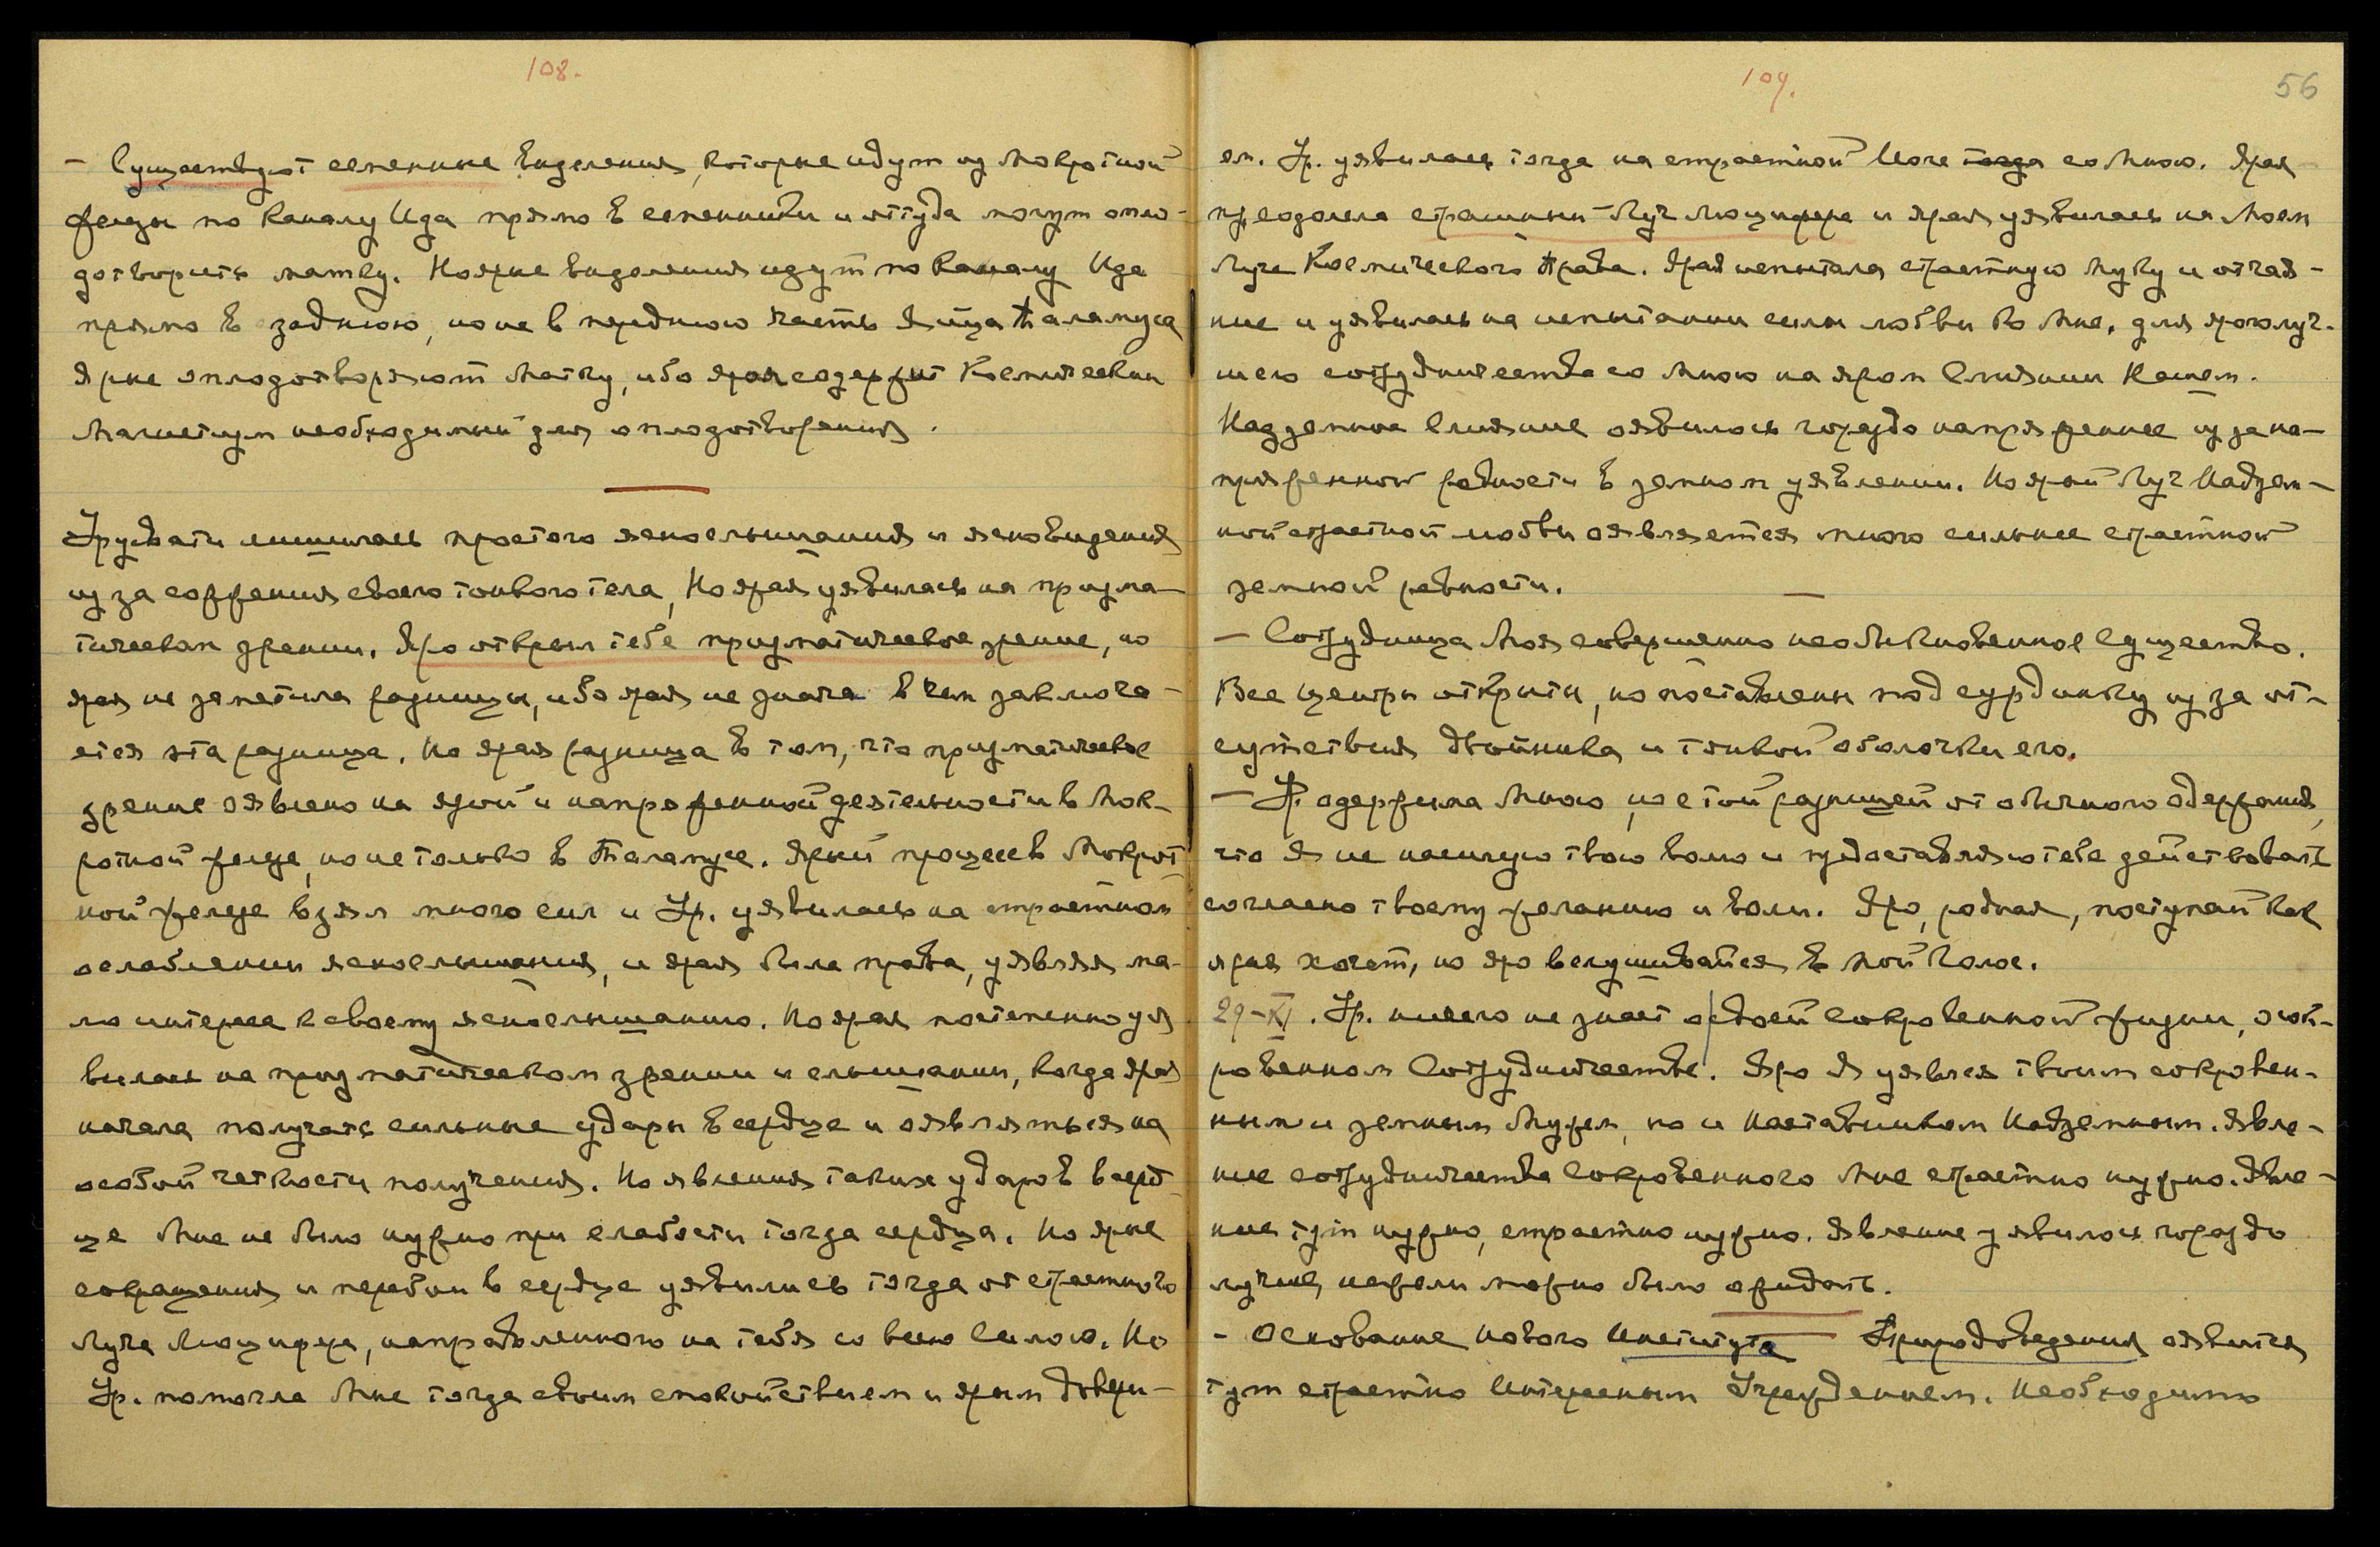 108.
– Существуют семенные выделения, которые идут из Мокротной
железы по каналу Ида прямо в семенники и оттуда могут опло-
дотворить матку. Но ярые выделения идут по каналу Ида
прямо в заднюю, но не в переднюю часть Яйца Таламуса
Ярые оплодотворяют Матку, ибо ярая содержит Космический
Магнетизм необходимый для оплодотворения.
Урусвати лишилась простого яснослышания и ясновидения
из за сожжения своего тонкого тела, Но ярая уявилась на призма-
тическом зрении. Яро открыл тебе призматическое зрение, но
ярая не заметила разницы, ибо ярая не знала в чем заключа-
ется эта разница. Но ярая разница в том, что призматическое
зрение оявлено на ярой и напряженной деятельности в Мок-
ротной железе, но не только в Таламусе. Ярый процесс в Мокрот-
ной железе взял много сил и Ур. уявилась на страстном
ослаблении яснослышания, и ярая была права, уявляя ма-
ло интереса к своему яснослышанию. Но ярая постепенно уя
вилась на призматическом зрении и слышании, когда ярая
начала получать сильные удары в сердце и оявляться на
особой четкости получения. Но явления таких ударов в серд-
це Мне не было нужно при слабости тогда сердца. Но ярые
сокращения и перебои в сердце уявились тогда от страстного
Луча Люцифера, направленного на тебя со всею силою. Но
Ур. помогла Мне тогда своим спокойствием и ярым довери-
109.
56
ем. Ур. уявилась тогда на страстной Йоге тогда со Мною. Ярая
преодолела страшный Луч Люцифера и ярая уявилась на Моем
Луче Космического Права. Ярая испытала страстную муку и отчая-
ние и уявилась на испытании силы любви ко Мне, для яролуч-
шего сотрудничества со Мною на яром Слиянии Нашем.
Надземное Слияние оявилось гораздо напряженнее из за на-
пряженной ревности в земном уявлении. Но ярый Луч Надзем-
ной страстной любви оявляется много сильнее страстной
земной ревности.
– Сотрудница Моя совершенно необыкновенное Существо.
Все центры открыты, но поставлены под сурдинку из за от-
сутствия двойника и тонкой оболочки его.
– Ур. одержима Мною, но с той разницей от обычного одержания,
что Я не насилую твою волю и предоставляю тебе действовать
согласно твоему желанию и воли. Яро, родная, поступай как
ярая хочет, но яро вслушивайся в Мой Голос.
29–XI. Ур. ничего не знает о своей Сокровенной жизни, о сок-
ровенном Сотрудничестве. Яро Я уявлся твоим сокровен-
ным и земным Мужем, но и Наставником Надземным. Явле-
ние сотрудничества Сокровенного Мне страстно нужно. Явле-
ние тут нужно, страстно нужно. Явление уявилось гораздо
лучше, нежели можно было ожидать.
– Основание Нового Института Природоведения оявится
тут страстно Интересным Учреждением. Необходимо